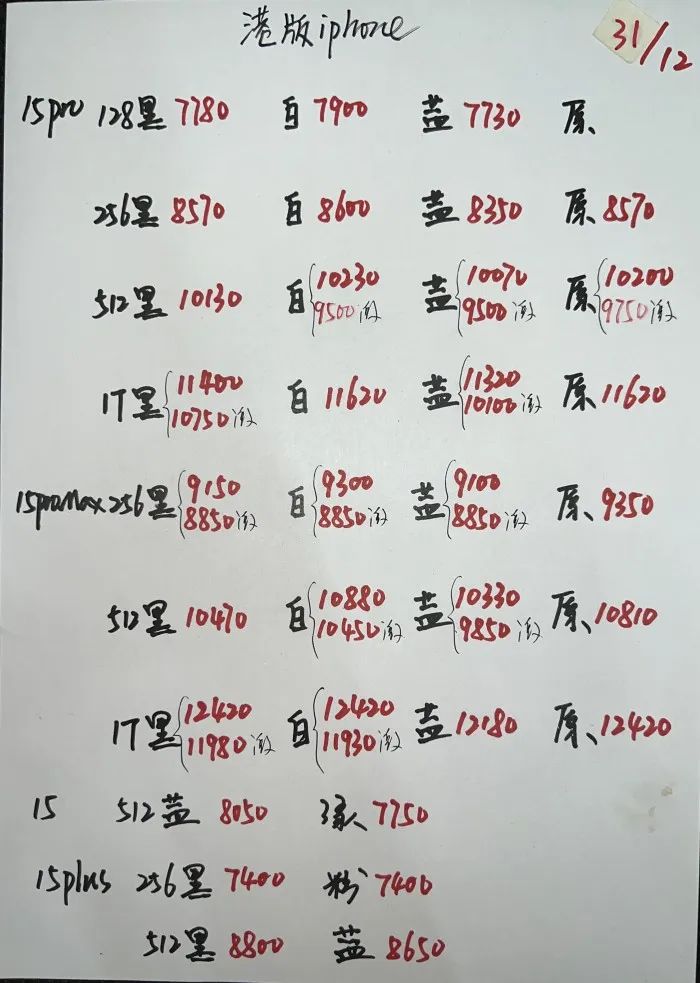 港版iphone
31/12
15pro 128黑 7780 白 7900 蓝 7730 原、
256黑 8570 白 8600 蓝 8350 原 8570
512黑 10130 白 10230 9500激 蓝 10070 9500激 原 10200 9750激
1T黑 11400 10750激 白 11620 蓝 11320 10100激 原 11620
15promax 256黑 9150 8850激 白 9300 8850激 蓝 9100 8850激 原、9350
512黑 10470 白 10880 10450激 蓝 10330 9850激 原、10810
1T黑 12420 11980激 白 12420 11930激 蓝 12180 原、12420
15 512蓝 8050 绿、7750
15plus 256黑 7400 粉 7400
512黑 8800 蓝 8650